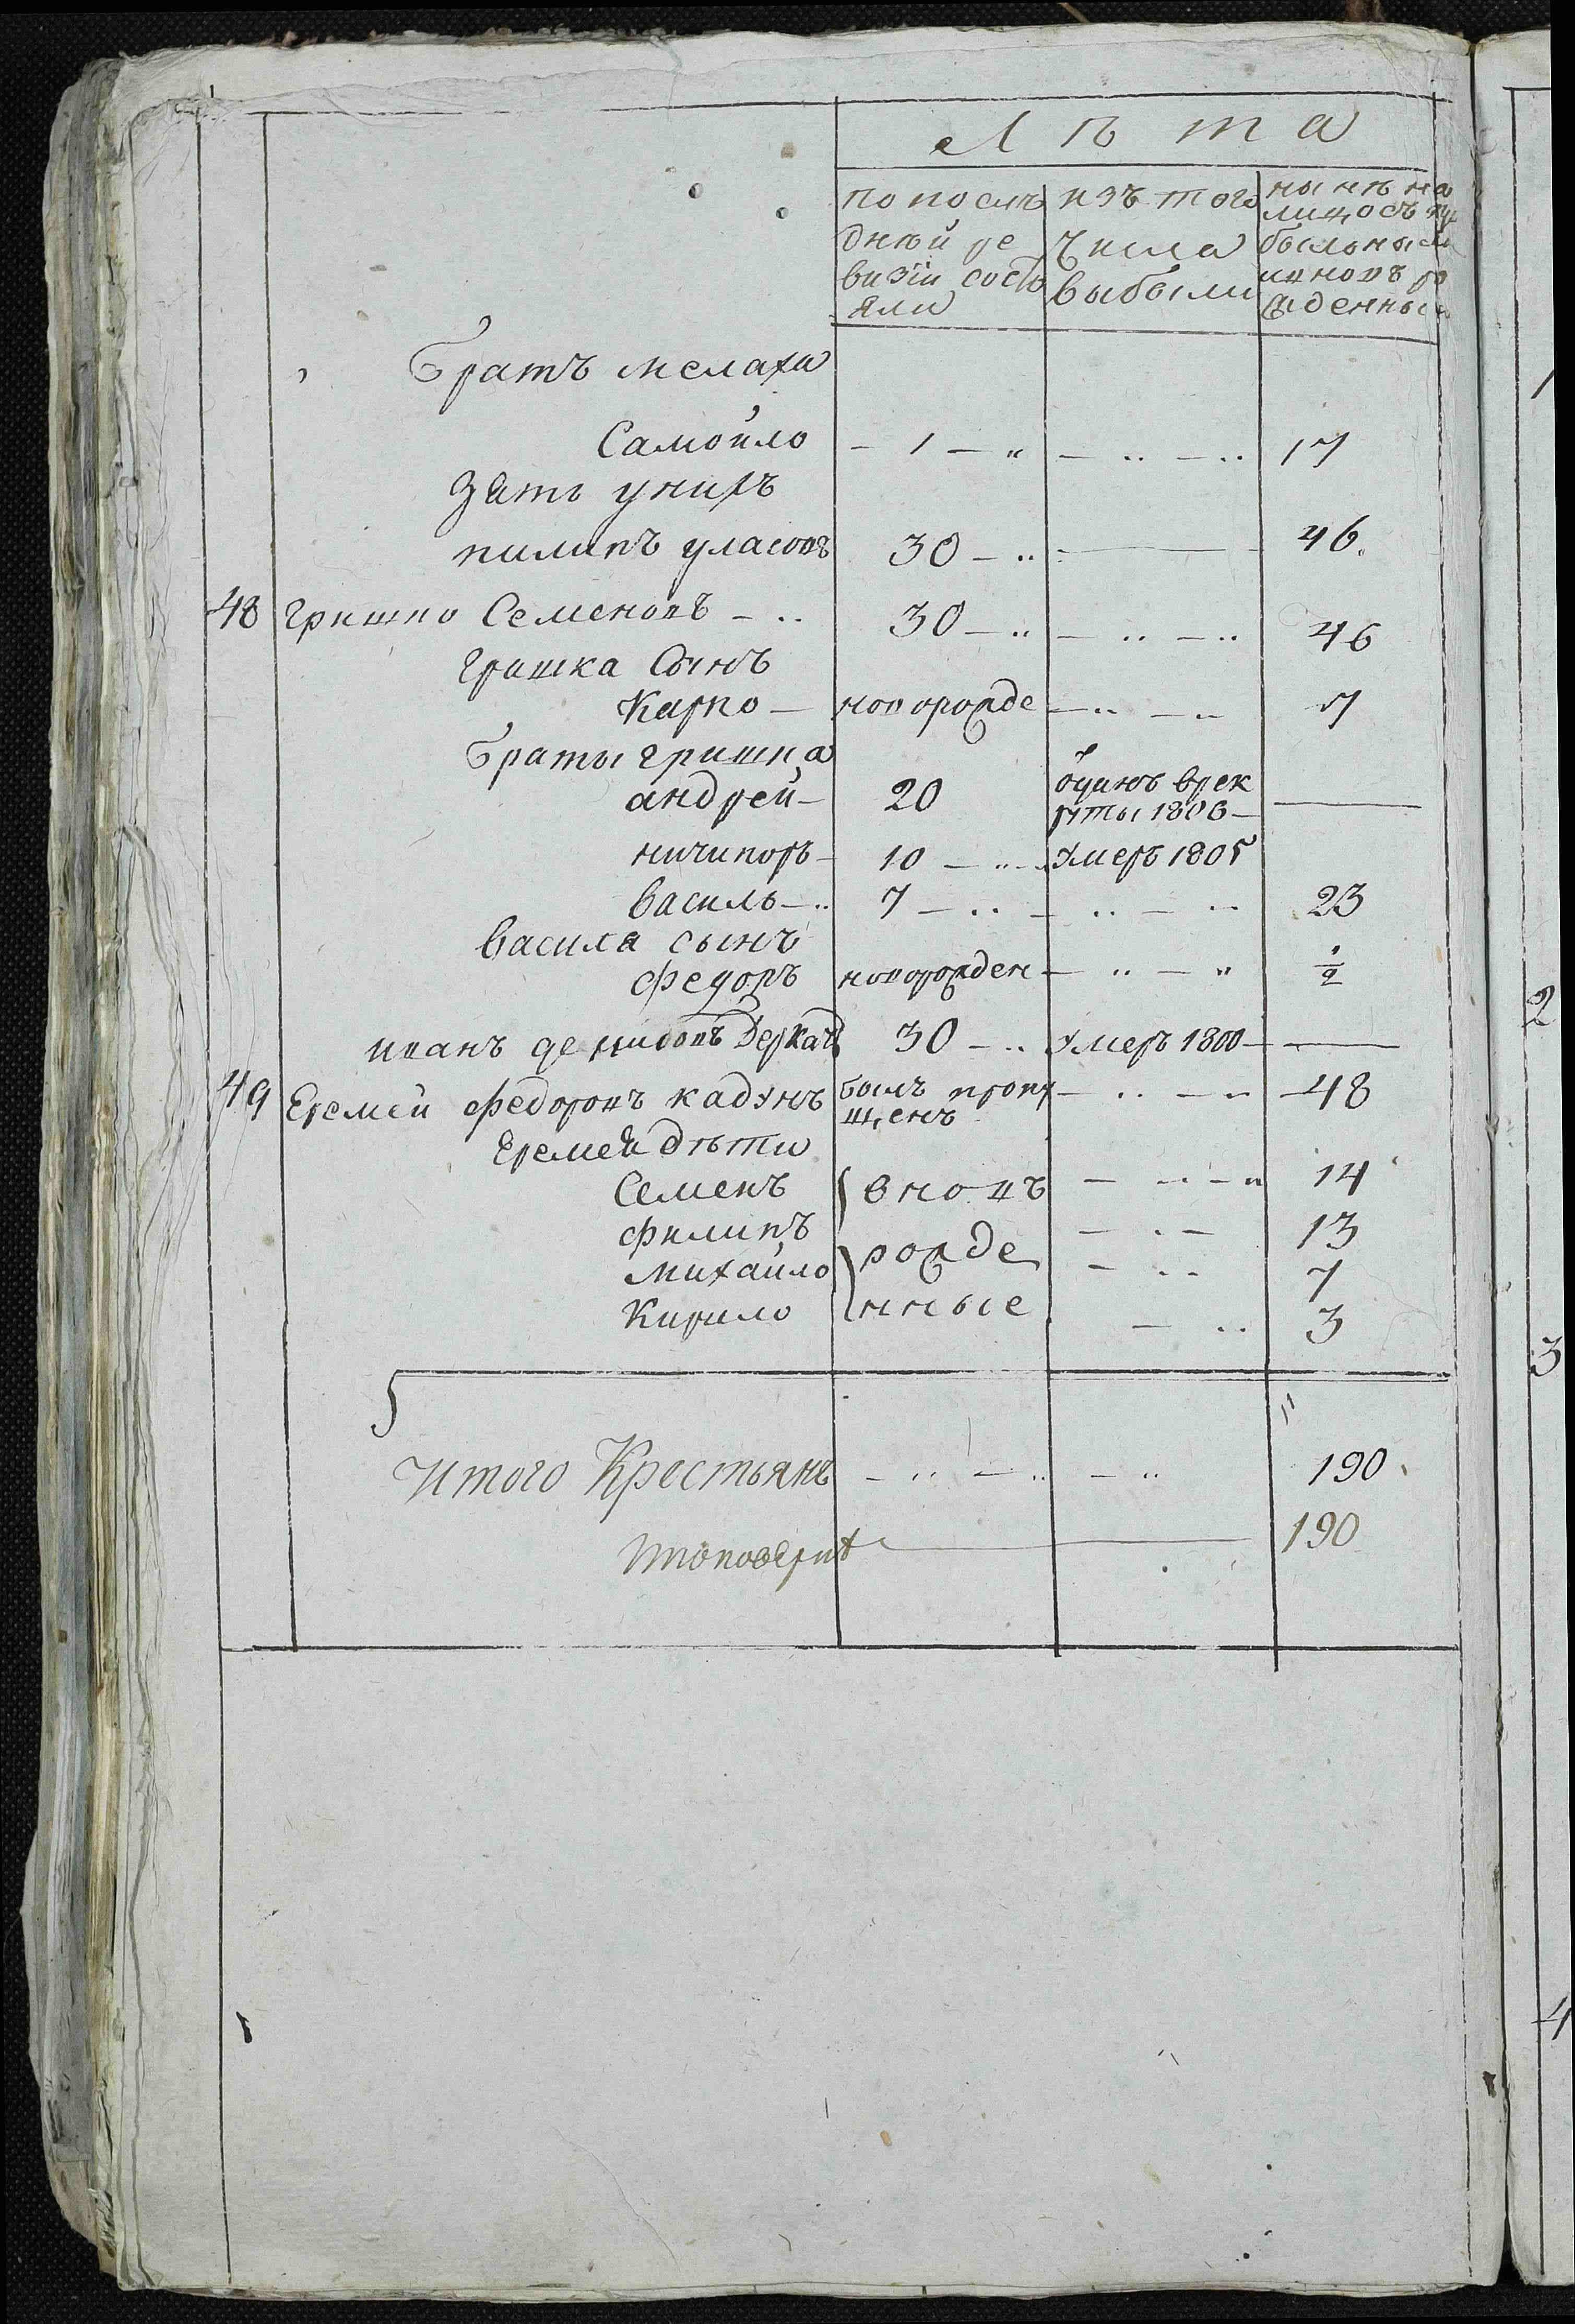 Лѣта
по послѣ
дней ре
визіи состо
яли
изъ того
числа
выбыли
нынѣ на
лицо съ при
былыми
и вновь ро
жденными
Братъ мелаха
Самойло - 1 - " - .. - .. 17
Зять у нихъ
пилипъ уласовъ 30 - .. 46.
48 гришко Семеновъ - .. 30 - .. - .. - .. 46
гришка сынъ
Карпо - новорожде - .. - .. 7
браты гришка
андрей - 20 одинъ в рек
руты 1806 -
ничипоръ - 10 - .. - умеръ 1805
василь - .. 7 - .. - .. - .. 23
василя сынъ
федоръ новорожден - .. - .. 1/2
иванъ демидовъ Деркачъ 30 - .. умеръ 1800 -
49 Еремей федоровъ кадунъ былъ пропу - .. - .. 48
щенъ
Еремея дѣти
Семенъ вновъ - .. - .. 14
филипъ - . - 13
михайло рожде - .. 7
Кирило нные - .. 3
Итого Крестьянъ - .. - .. - .. 190.
190
1
2
3
4